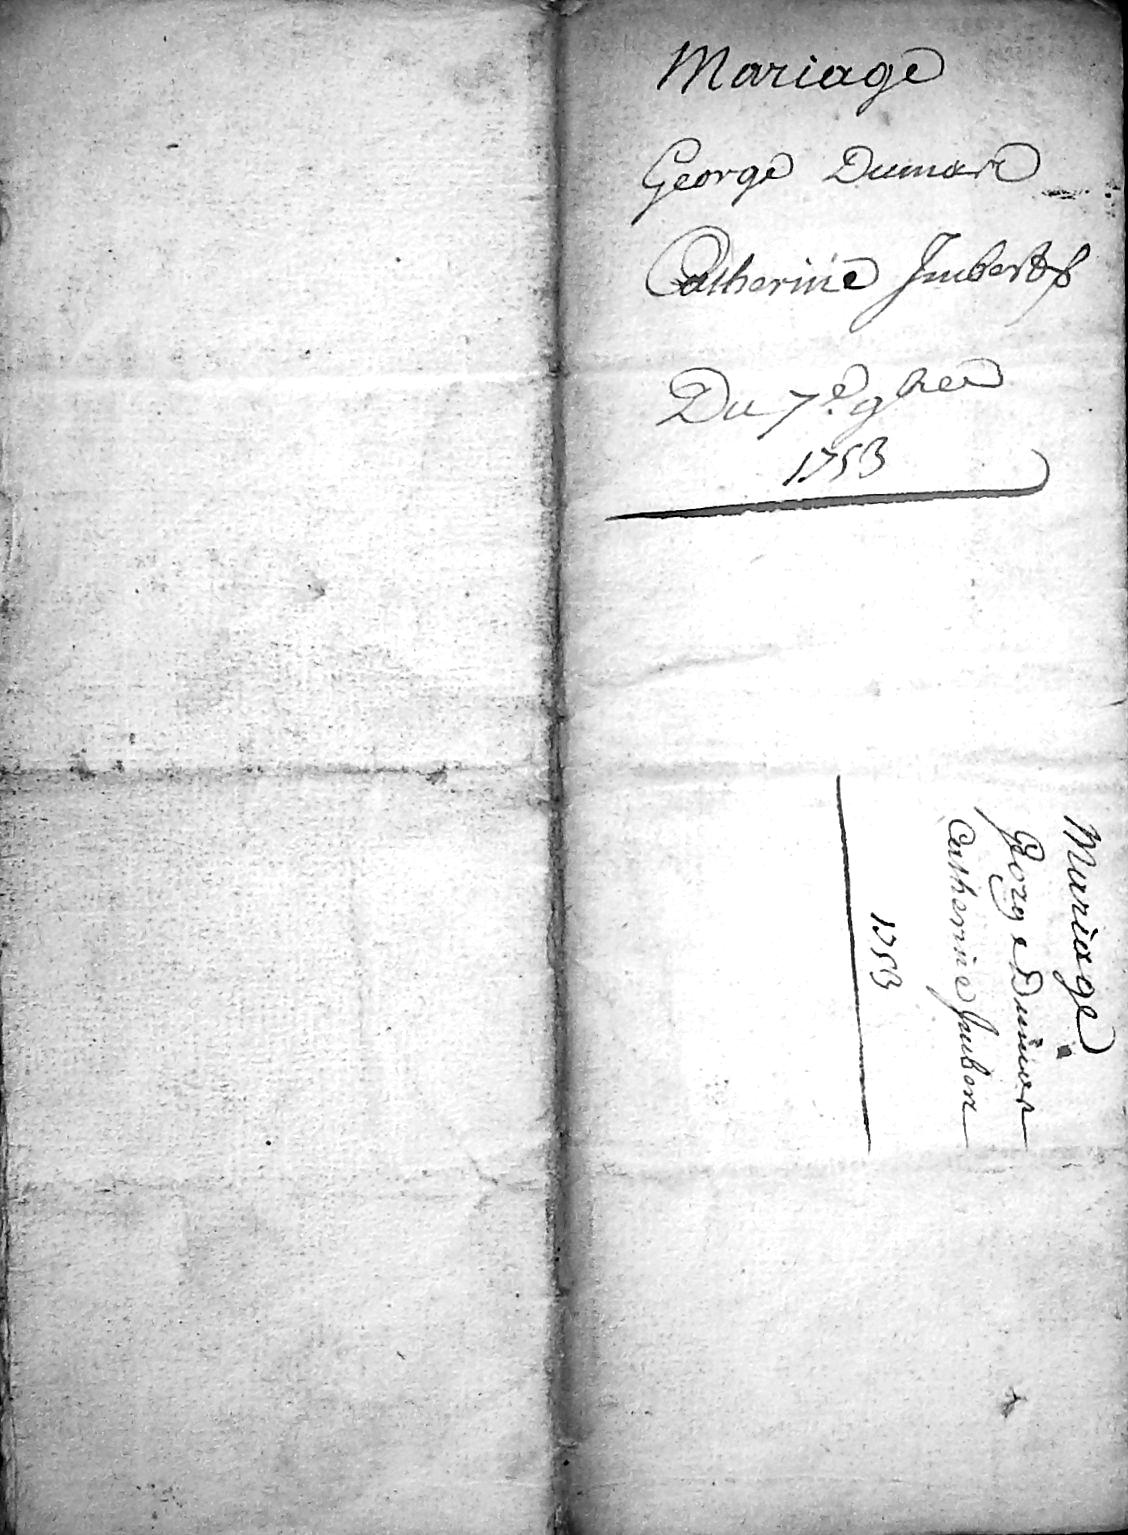 Mariage
George Dumas
Catherine Imbert
Du 7e. 9bre
1753
Mariage
George Dumas
Catherine Imbert
1753